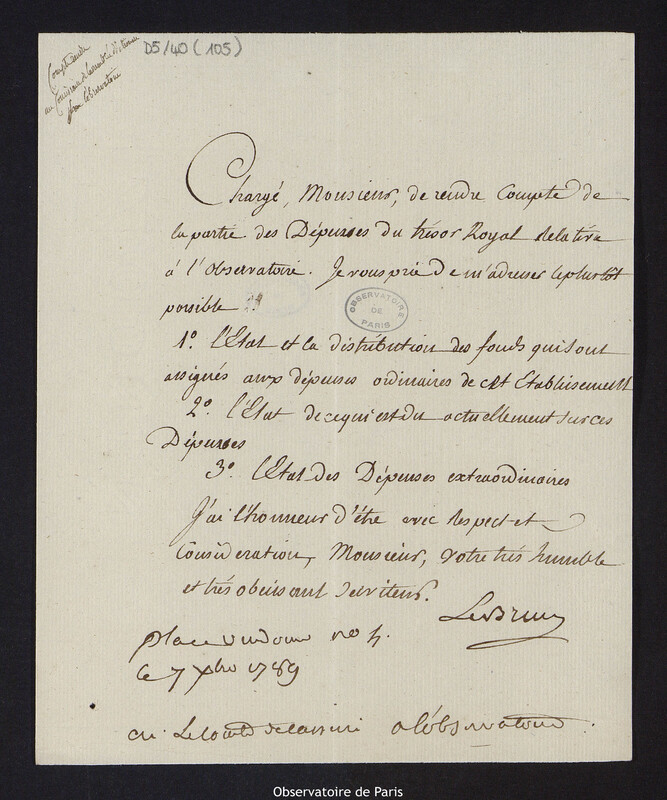 Compte rendu
au
pour l'observatoire
D5/40 (105)
Chargé, Monsieur, de rendre Compte de
la partie des Dépenses du trésor Royal Relative
à l'Observatoire. Je vous prie De m'adresser le plus tôt
possible :
OBSERVATOIRE
DE
PARIS
1º. l'Etat et la distribution des fonds qui sont
assignés aux dépenses ordinaires de cet Etablissement
2º. l'Etat de ce qui est du actuellement sur ces
Dépenses
3º. l'Etat des Dépenses extraordinaires
J'ai l'honneur d'être avec Respect et
Considération, Monsieur, votre très humble
et très obéissant Serviteur.
Lebrun
place vendome no 4.
ce 7 xbre 1789
Le Comte de Cassini a l'observatoire.
Observatoire de Paris